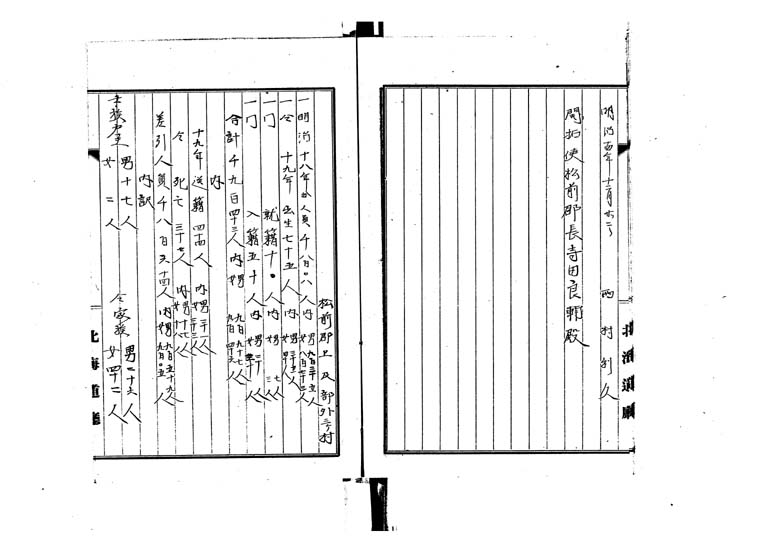 明治四年十二月廿六日　西村利久
開拓使松前郡長寺田良輔殿
北海道廳
松前郡上及部外三ヶ村
一明治十八年分人員千八百〇八人内男九百三十五人女八百七十三人
一仝十九年出生七十五人内男三十五人女四十人
一〃就籍十〇人内男七人女三人
一〃入籍五十人内男二十人女三十人
合計千九百四十三人内男九百九十七人女九百四十六人
内
十九年送籍四十四人内男二十人女二十三人
仝死亡三十七人内男十八人女十八人
差引人員千八百六十四人内男九百五十九人女九百〇五人
内訳
士族戸主男十七人女二人　仝家族男二十六人女四十二人
北海道廳